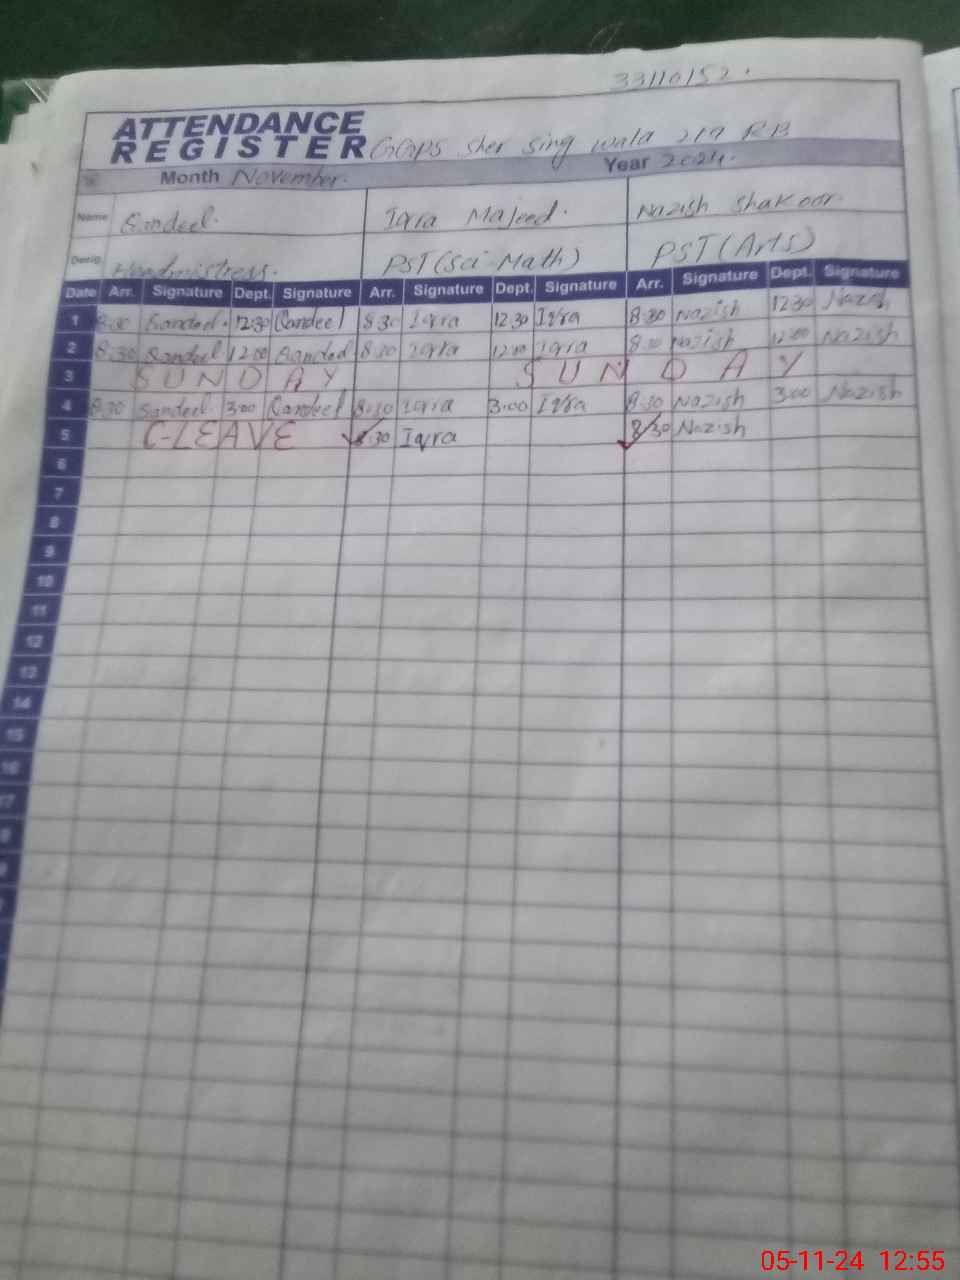 33110152.
ATTENDANCE
REGISTER GGPS Sher Sing wala 219 R.B.
Month November. Year 2024.
Name Qandeel. Iqra Majeed. Nazish Shakoor.
Desig. Headmistress. PST(Sci-Math) PST(Arts)
Date Arr. Signature Dept. Signature Arr. Signature Dept. Signature Arr. Signature Dept. Signature
1 8:30 Qandeel. 12:30 Qandeel 8:30 Iqra 12:30 Iqra 8:30 Nazish 12:30 Nazish
2 8:30 Qandeel 12:00 Qandeel 8:30 Iqra 12:00 Iqra 8:30 Nazish 12:00 Nazish
3 SUNDAY SUNDAY
4 8:30 Qandeel 3:00 Qandeel 8:30 Iqra 3:00 Iqra 8:30 Nazish 3:00 Nazish
5 C-LEAVE 8:30 Iqra 8:30 Nazish
6
7
8
9
10
11
12
13
14
15
16
17
05-11-24 12:55